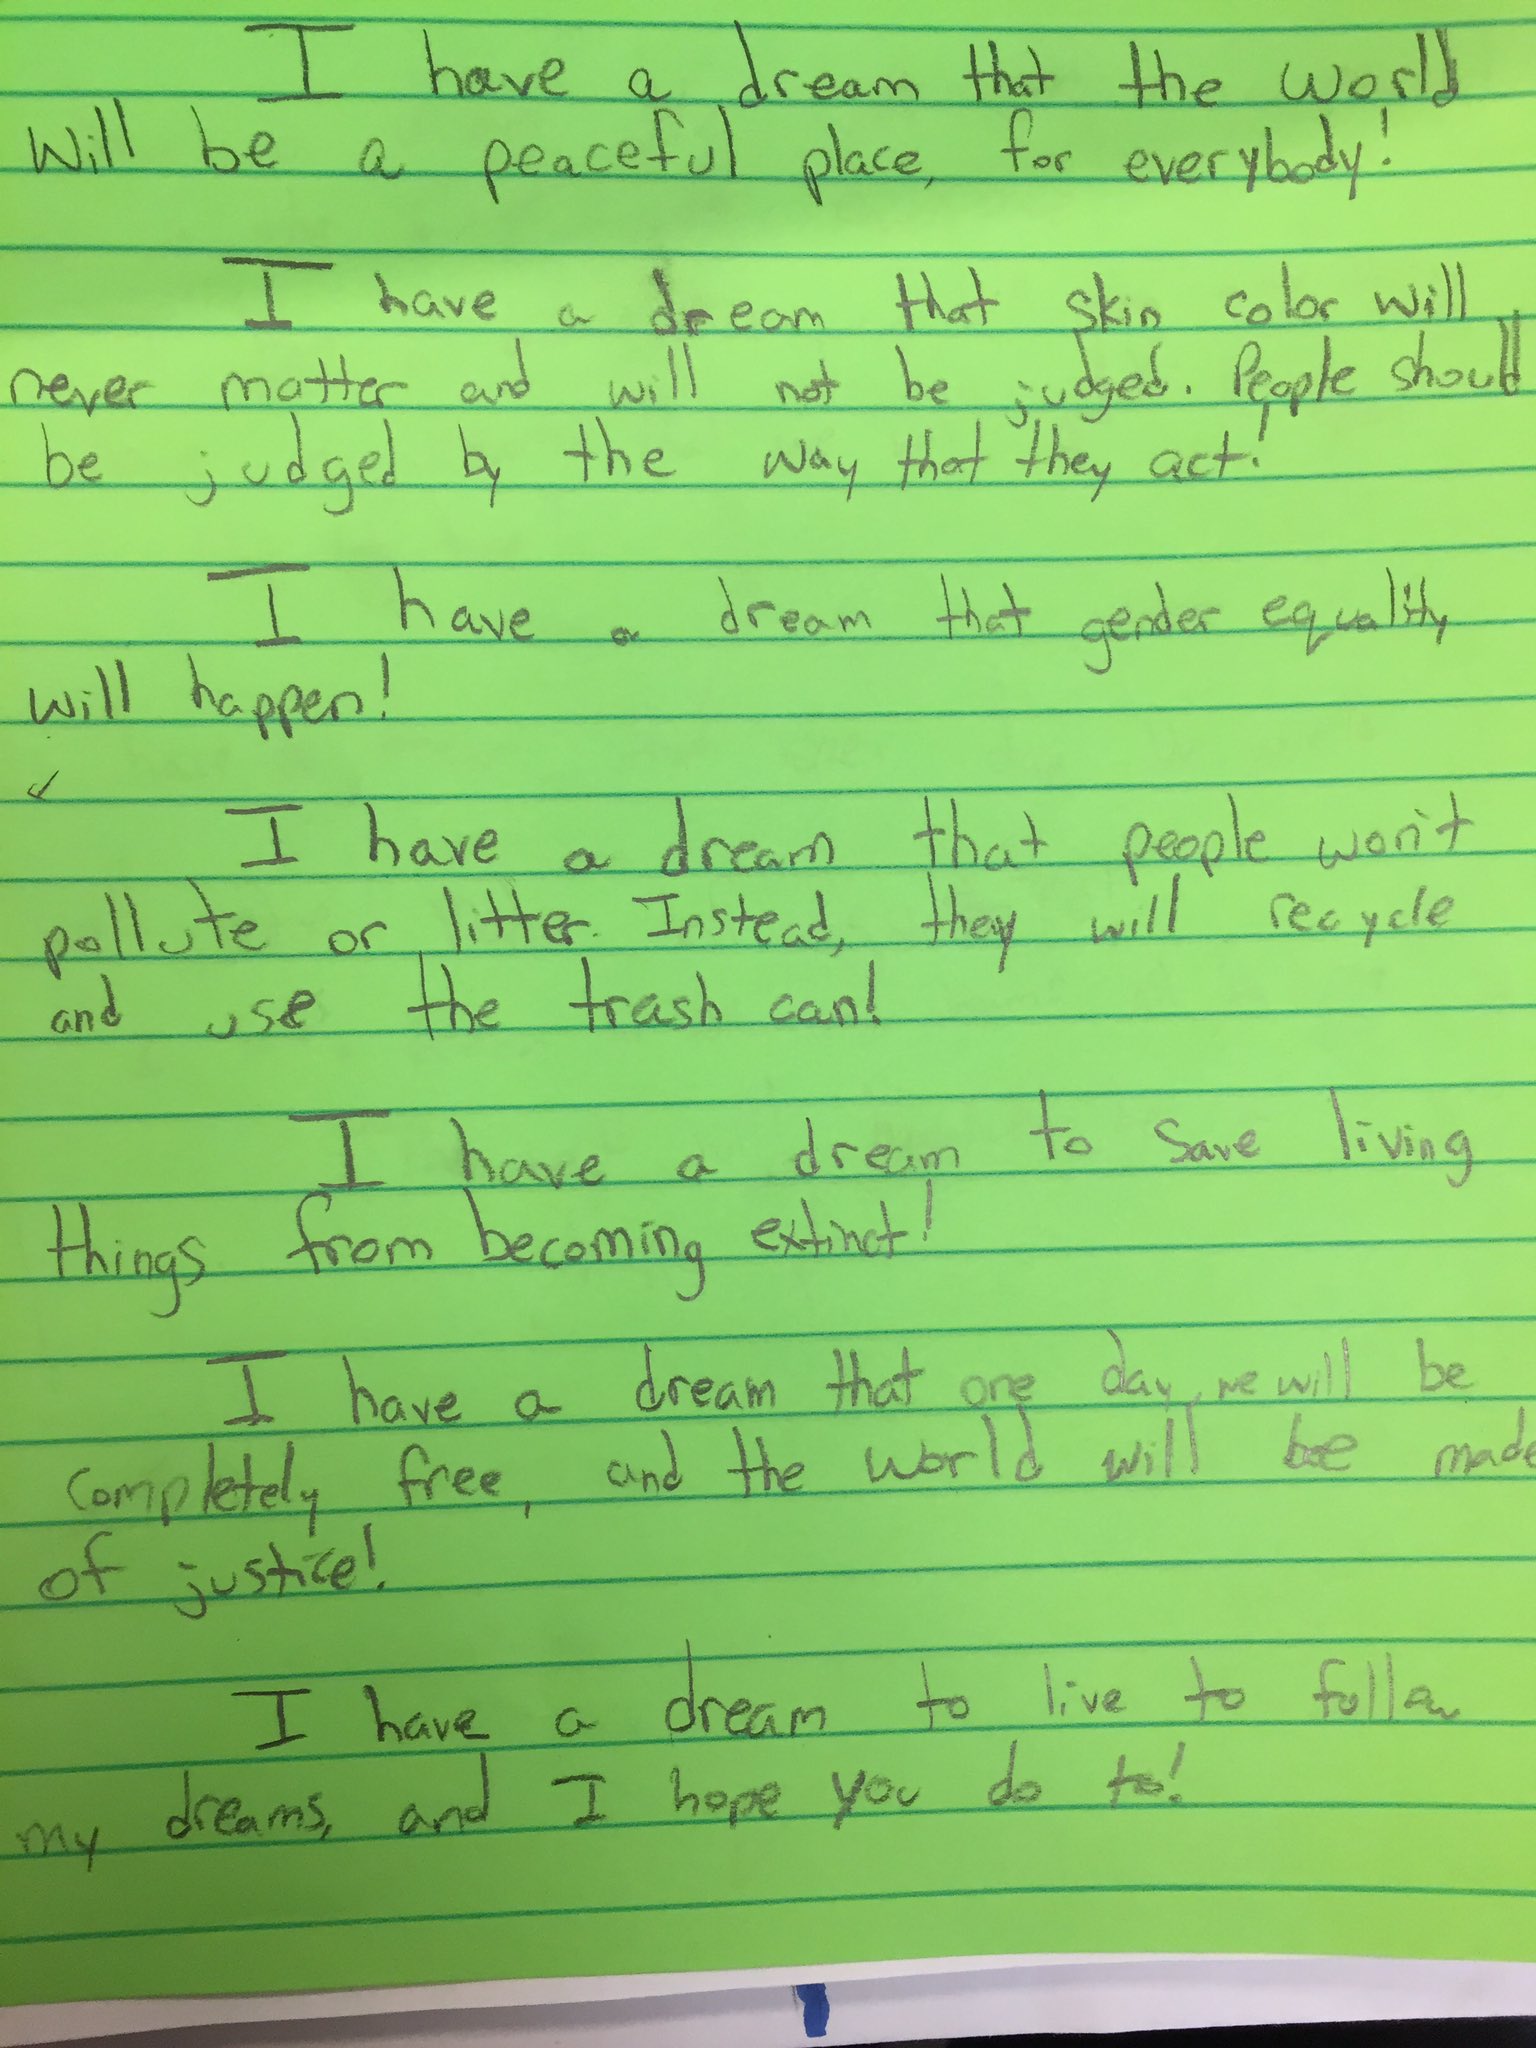 I have a dream that the world
will be a peaceful place, for everybody!
I have a dream that skin color will
never matter and will not be judged. People should
be judged by the way that they act!
I have a dream that gender equality
will happen!
I have a dream that people won't
pollute or litter. Instead, they will recycle
and use the trash can!
I have a dream to save living
things from becoming extinct!
I have a dream that one day, we will be
completely free, and the world will be made
of justice!
I have a dream to live to follow
my dreams, and I hope you do to!